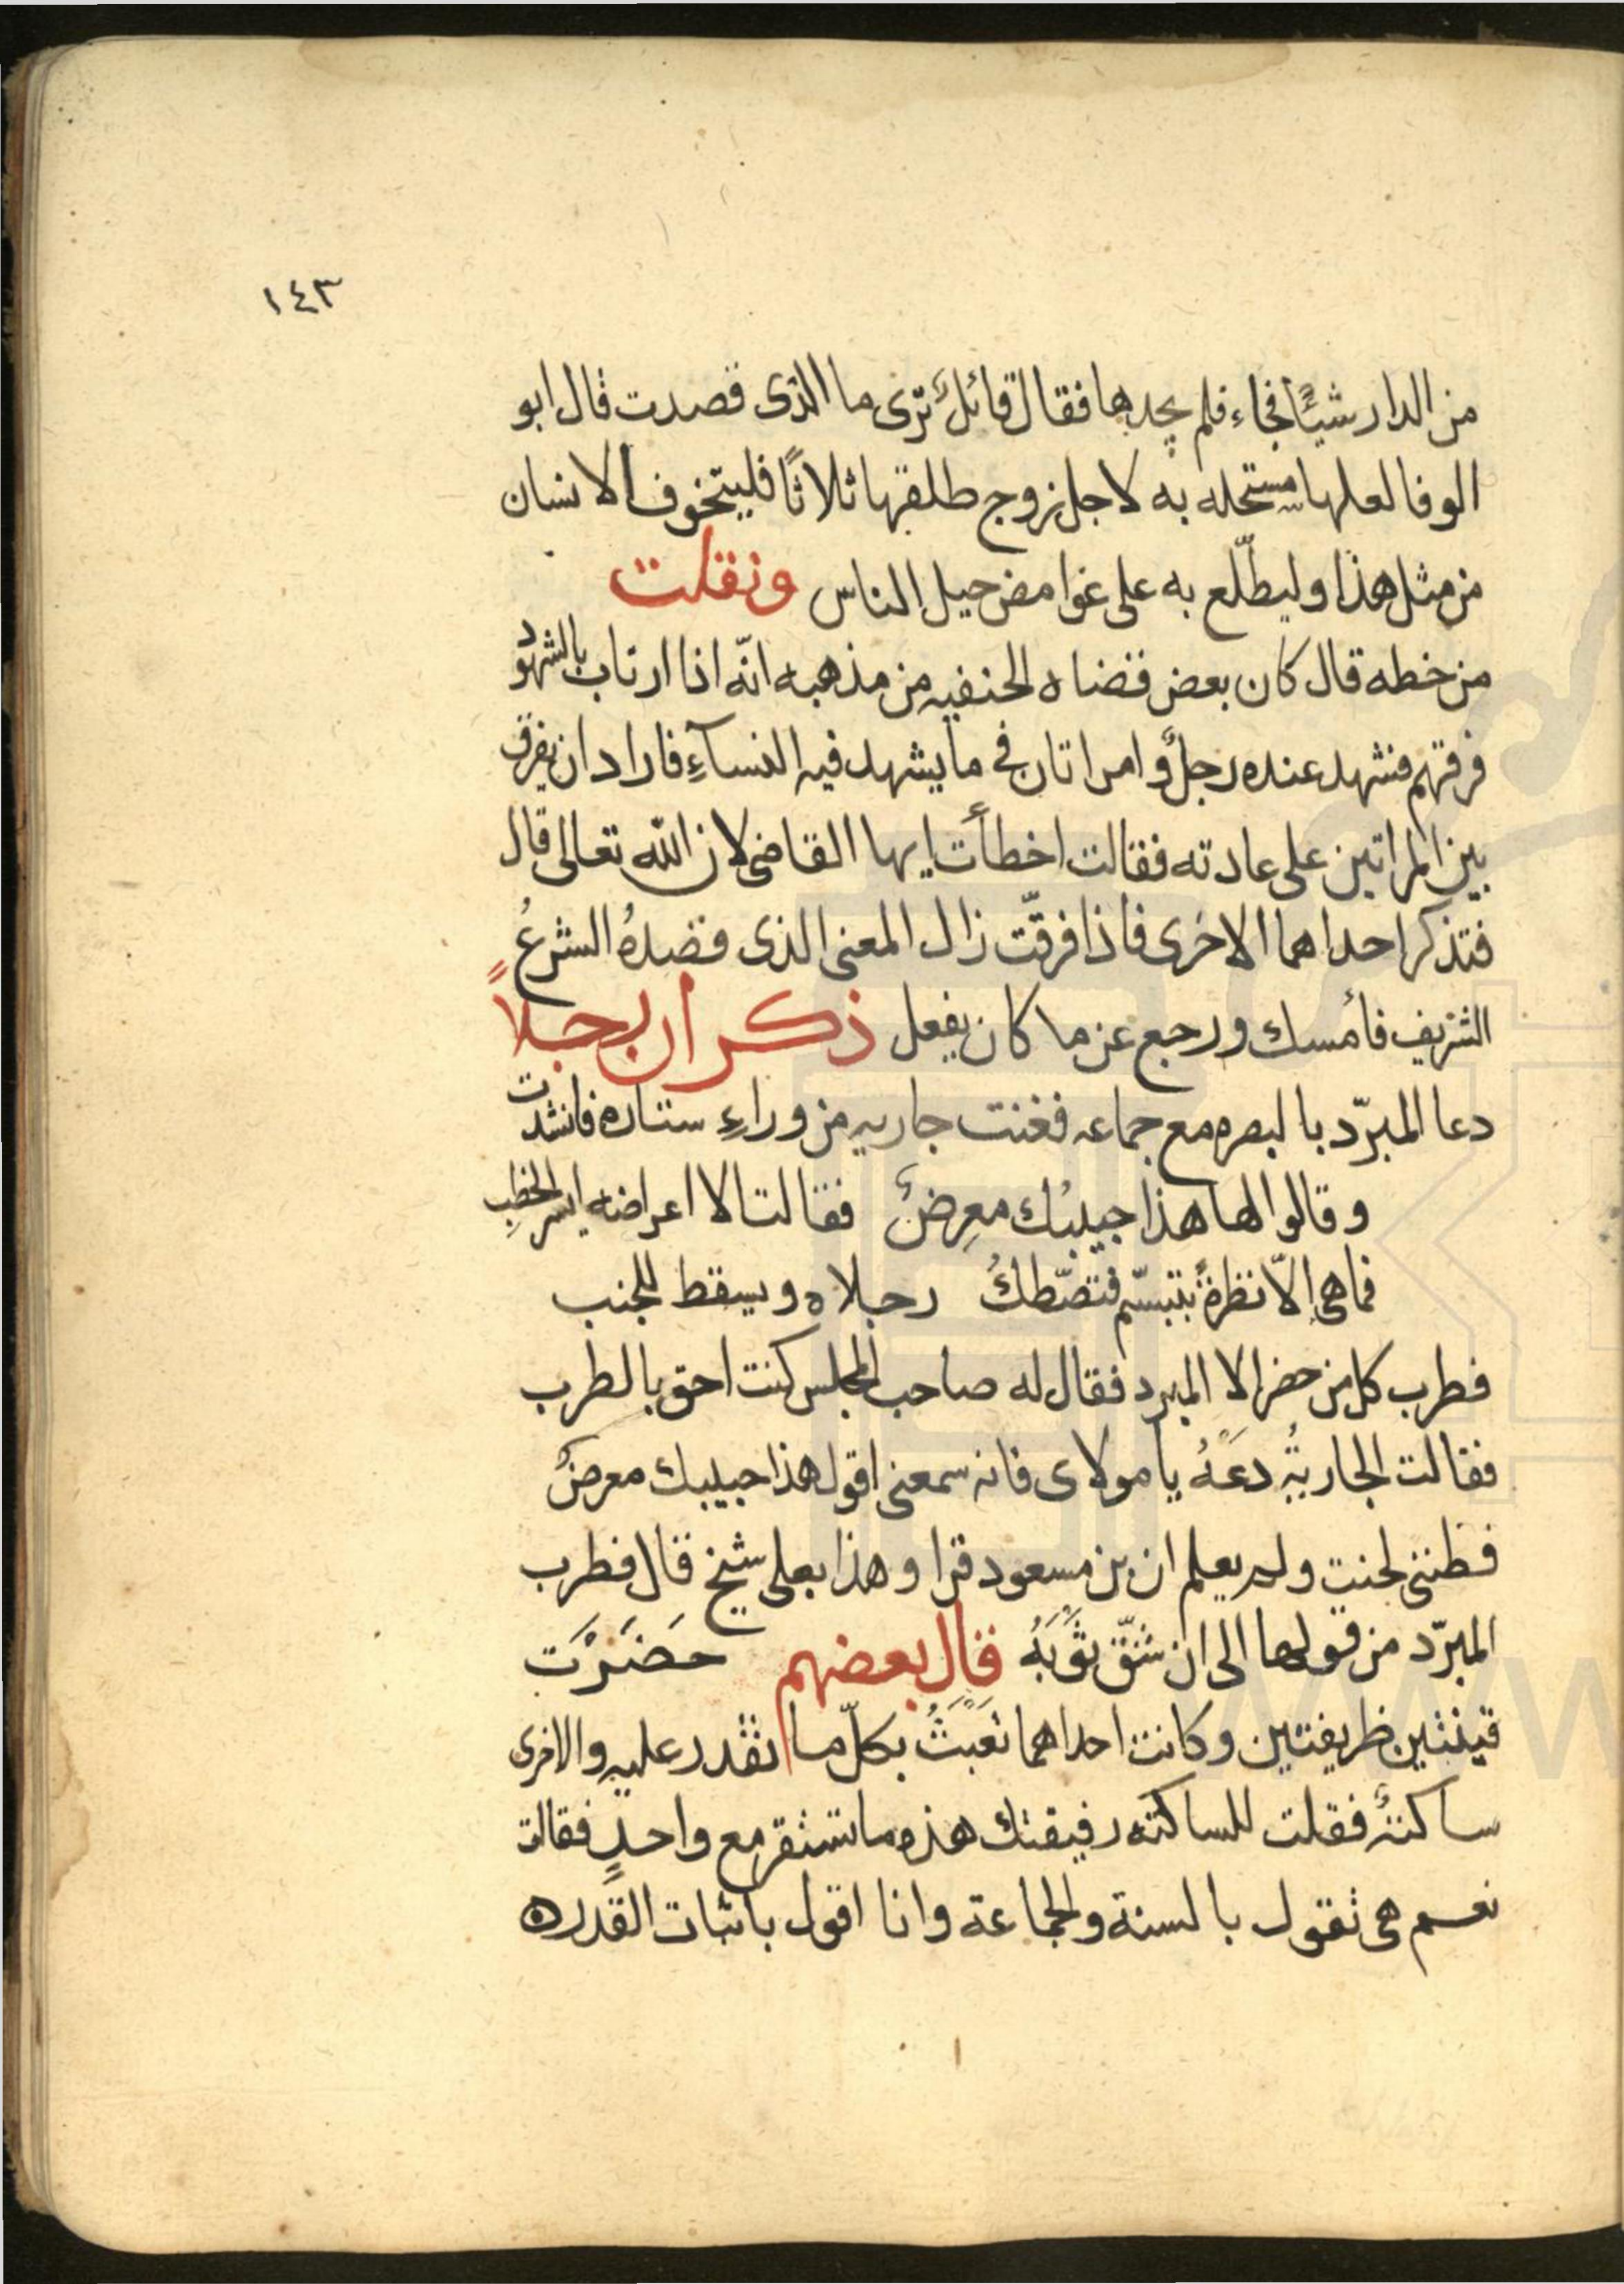 ١٤٣
من الدار شيئًا فجاء فلم يجدها فقال قائلٌ ترى ما الذى قصدت قال ابو
الوفا لعلها مستحله به لاجل زوج طلقها ثلاثًا فليتخوف الانسان
من مثل هذا وليطّلع به على غوامض حيل الناس ونقلت
من خطه قال كان بعض قضاه الحنفيه من مذهبه انّه اذا ارتاب بالشهود
فرقهم فشهد عنده رجلٌ وامراتان فى ما يشهد فيه النسآءِ فاراد ان يفرق
بين المراتين على عادته فقالت اخطأت ايها القاضى لان الله تعالى قال
فتذكر احداهما الاخرى فاذا فرقّت زال المعنى الذى قصدهُ الشرعُ
الشريف فأمسك ورجع عن ما كان يفعل ذكر ان رجلاً
دعا المبرّد بالبصره مع جماعه فغنت جاريه من وراءِ ستاره فانشدت
وقالوا لها هذا حبيبُك معرِضٌ فقالت الا اعراضه ايسر الخطبِ
فما هى الّا نظرةٌ بتبسّم فتصّطكُ رجلاه ويسقط للجنب
فطرب كل من حضر الا المبرد فقال له صاحب المجلس كنت احق بالطرب
فقالت الجاريةُ دعَهُ يا مولاى فانه سمعنى اقول هذا حبيبك معرضٌ
فظننى لحنت ولم يعلم ان بن مسعود قرا وهذا بعلى شيخ قال فطرب
المبرّد من قولها الى ان شقّ ثوَبَهُ قال بعضهم حَضَرْت
قينتين ظريفتين وكانت احداهما تعَبَثُ بكلّ ما تقدر عليه والاخرى
ساكتةٌ فقلت للساكته رفيقتك هذه ما تستقر مع واحدٍ فقالت
نعم هى تقول بالسنة والجماعة وانا اقول باثبات القدر ه